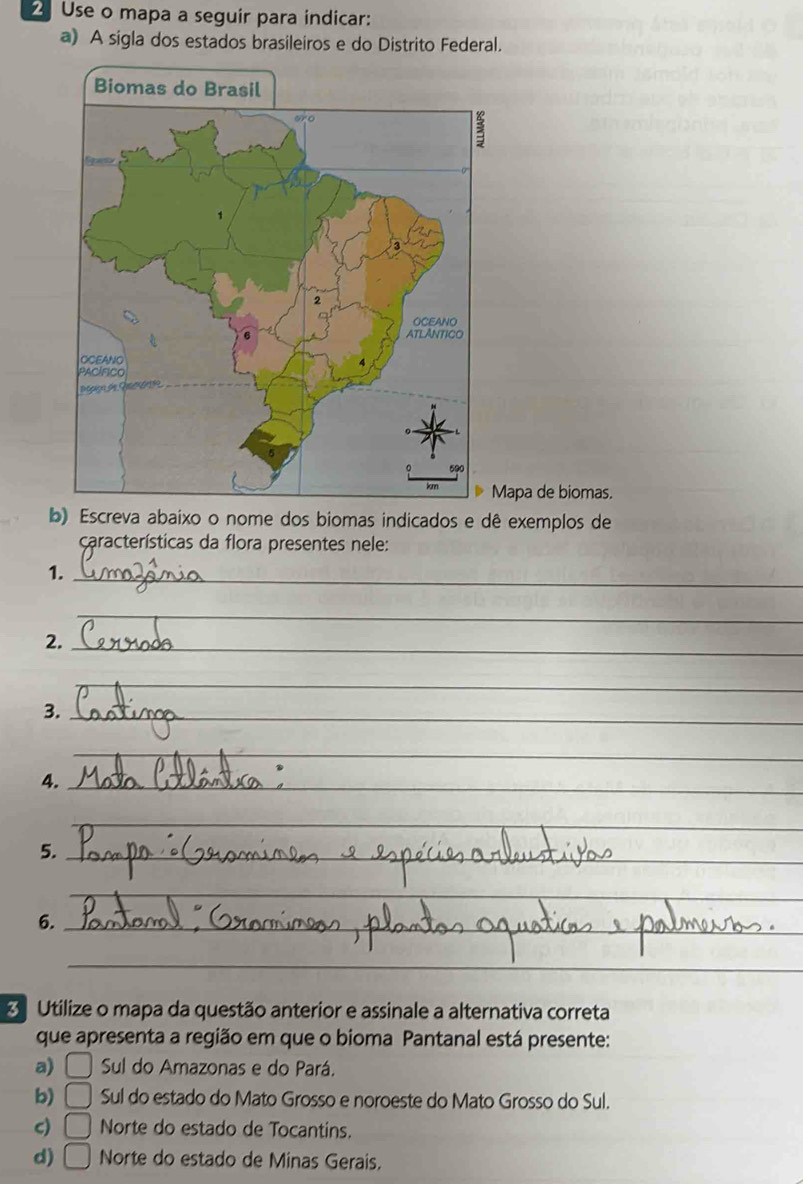 2 Use o mapa a seguir para indicar:
a) A sigla dos estados brasileiros e do Distrito Federal.
Biomas do Brasil
ALLMAPS
Equador
0°
1
3
2
OCEANO
ATLÂNTICO
6
OCEANO
PACÍFICO
4
N
O L
S
5
0 590
km
Mapa de biomas.
b) Escreva abaixo o nome dos biomas indicados e dê exemplos de
características da flora presentes nele:
1. Amazânia
2. Cerrado
3. Caatinga
4. Mata Atlântica:
5. Pampa: Geramineas e espécies arbustivas
6. Pantanal: Gramineas, plantas aquaticas e palmeiras.
3 Utilize o mapa da questão anterior e assinale a alternativa correta
que apresenta a região em que o bioma Pantanal está presente:
a) Sul do Amazonas e do Pará.
b) Sul do estado do Mato Grosso e noroeste do Mato Grosso do Sul.
c) Norte do estado de Tocantins.
d) Norte do estado de Minas Gerais.